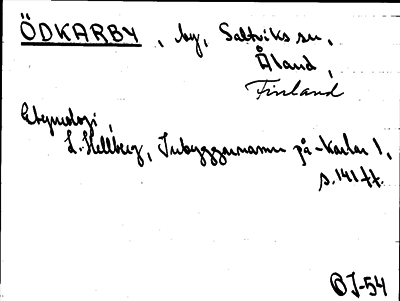 ÖDKARBY, by, Saltviks sn,
Åland,
Finland
Etymologi,
L. Hellberg, Inbyggarnamn på -karlar 1,
s. 141 ff.
ÖJ-54